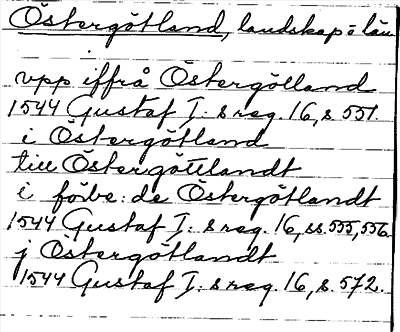 Östergötland, landskap o län
upp iffrå Östergölland
1544 Gustaf I: s reg. 16, s. 551.
i Östergötland
till Östergöttlandt
i förbe: de Östergötlandt
1544 Gustaf I: s reg. 16, ss. 555, 556.
j Östergötlandt
1544 Gustaf I: s reg. 16, s. 572.